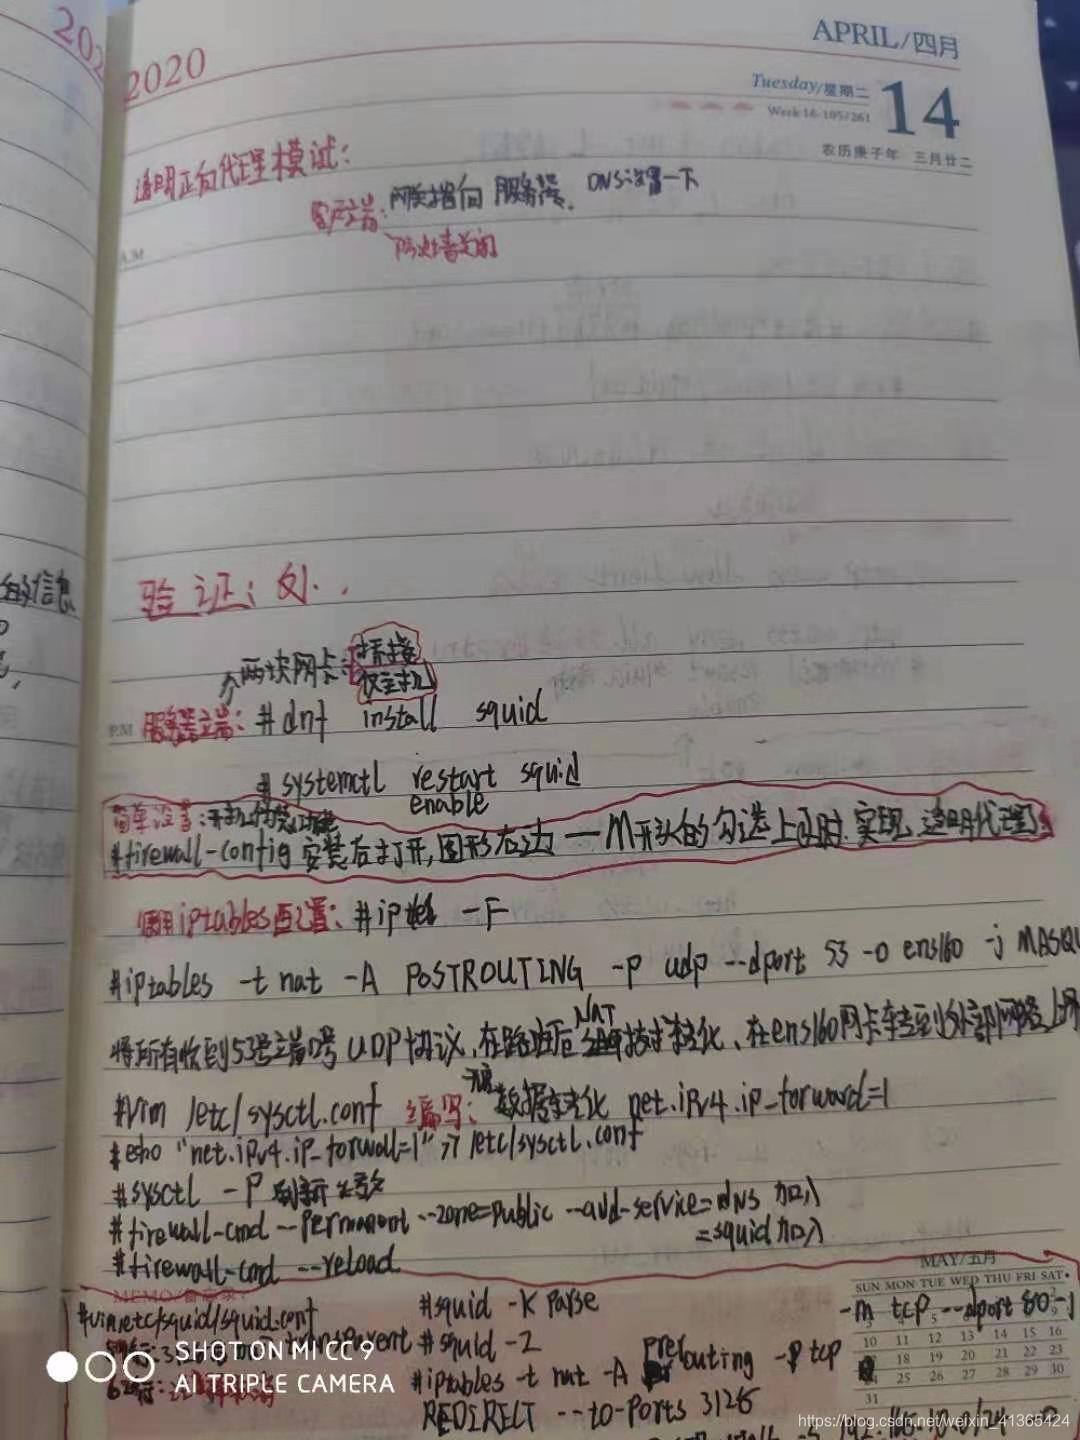 202
2020
APRIL/四月
Tuesday/星期二
14
Week 16·105/261
农历庚子年 三月廿二
透明正向代理模试:
客户端: 网关指向 服务器. DNS设置一下
防火墙关闭
A.M
的信息
验证: 外..
两块网卡: 桥接
仅主机
P.M
服务器端: #dnf install squid
# systemctl restart squid
enable
简单设置:开启伪装功能
#firewall-config 安装后打开,图形右边一M开头的勾选上即时.实现.透明代理
调用iptables配置: -F
#iptables -t nat -A POSTROUTING -p udp --dport 53 -o ens160 -j MASQU
将所有收到53号端口号UDP协议,在路由后 NAT 转化、在ens160网卡转到外部网络上
#vim /etc/sysctl.conf 编写: 数据转化 net.ipv4.ip_forward=1
#echo "net.ipv4.ip_forwall=1" >> /etc/sysctl.conf
#sysctl -P 刷新
#firewall-cmd --permanent --zone=public --add-service=dns 加入
=squid 加入
#firewall-cmd --reload
MEMO/备忘录:
MAY/五月
SUN MON TUE WED THU FRI SAT
#vim etc/squid/squid.conf
#squid -k parse
-m tcp --dport 80 -j
transparent #squid -z
#iptables -t nat -A prerouting -p tcp
REDIRECT --to-ports 3128
10 11 12 13 14 15 16
18 19 20 21 22 23
25 26 27 28 29 30
31
SHOT ON MI CC 9
AI TRIPLE CAMERA
https://blog.csdn.net/weixin_41365424